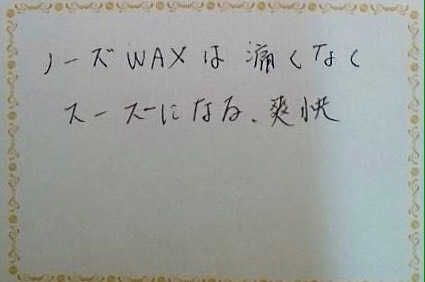 ノーズWAXは痛くなく
スースーになる、爽快